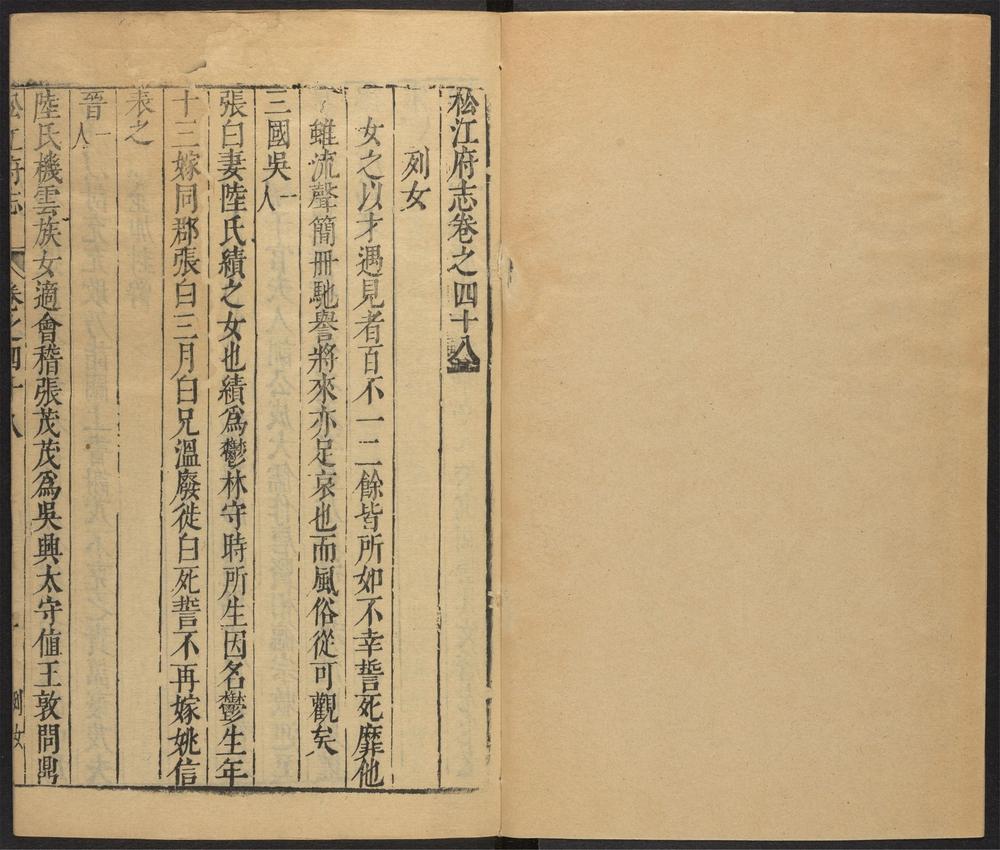 松江府志卷之四十八
列女
女之以才遇見者百不一二餘皆所如不幸誓死靡他
雖流聲簡冊馳譽將來亦足哀也而風俗從可觀矣
三國吳一人
張白妻陸氏績之女也績爲鬱林守時所生因名鬱生年
十三嫁同郡張白三月白兄溫廢徙白死誓不再嫁姚信
表之
晉一人
陸氏機雲族女適會稽張茂茂爲吳興太守值王敦問鼎
松江府志 卷之四十八 列女